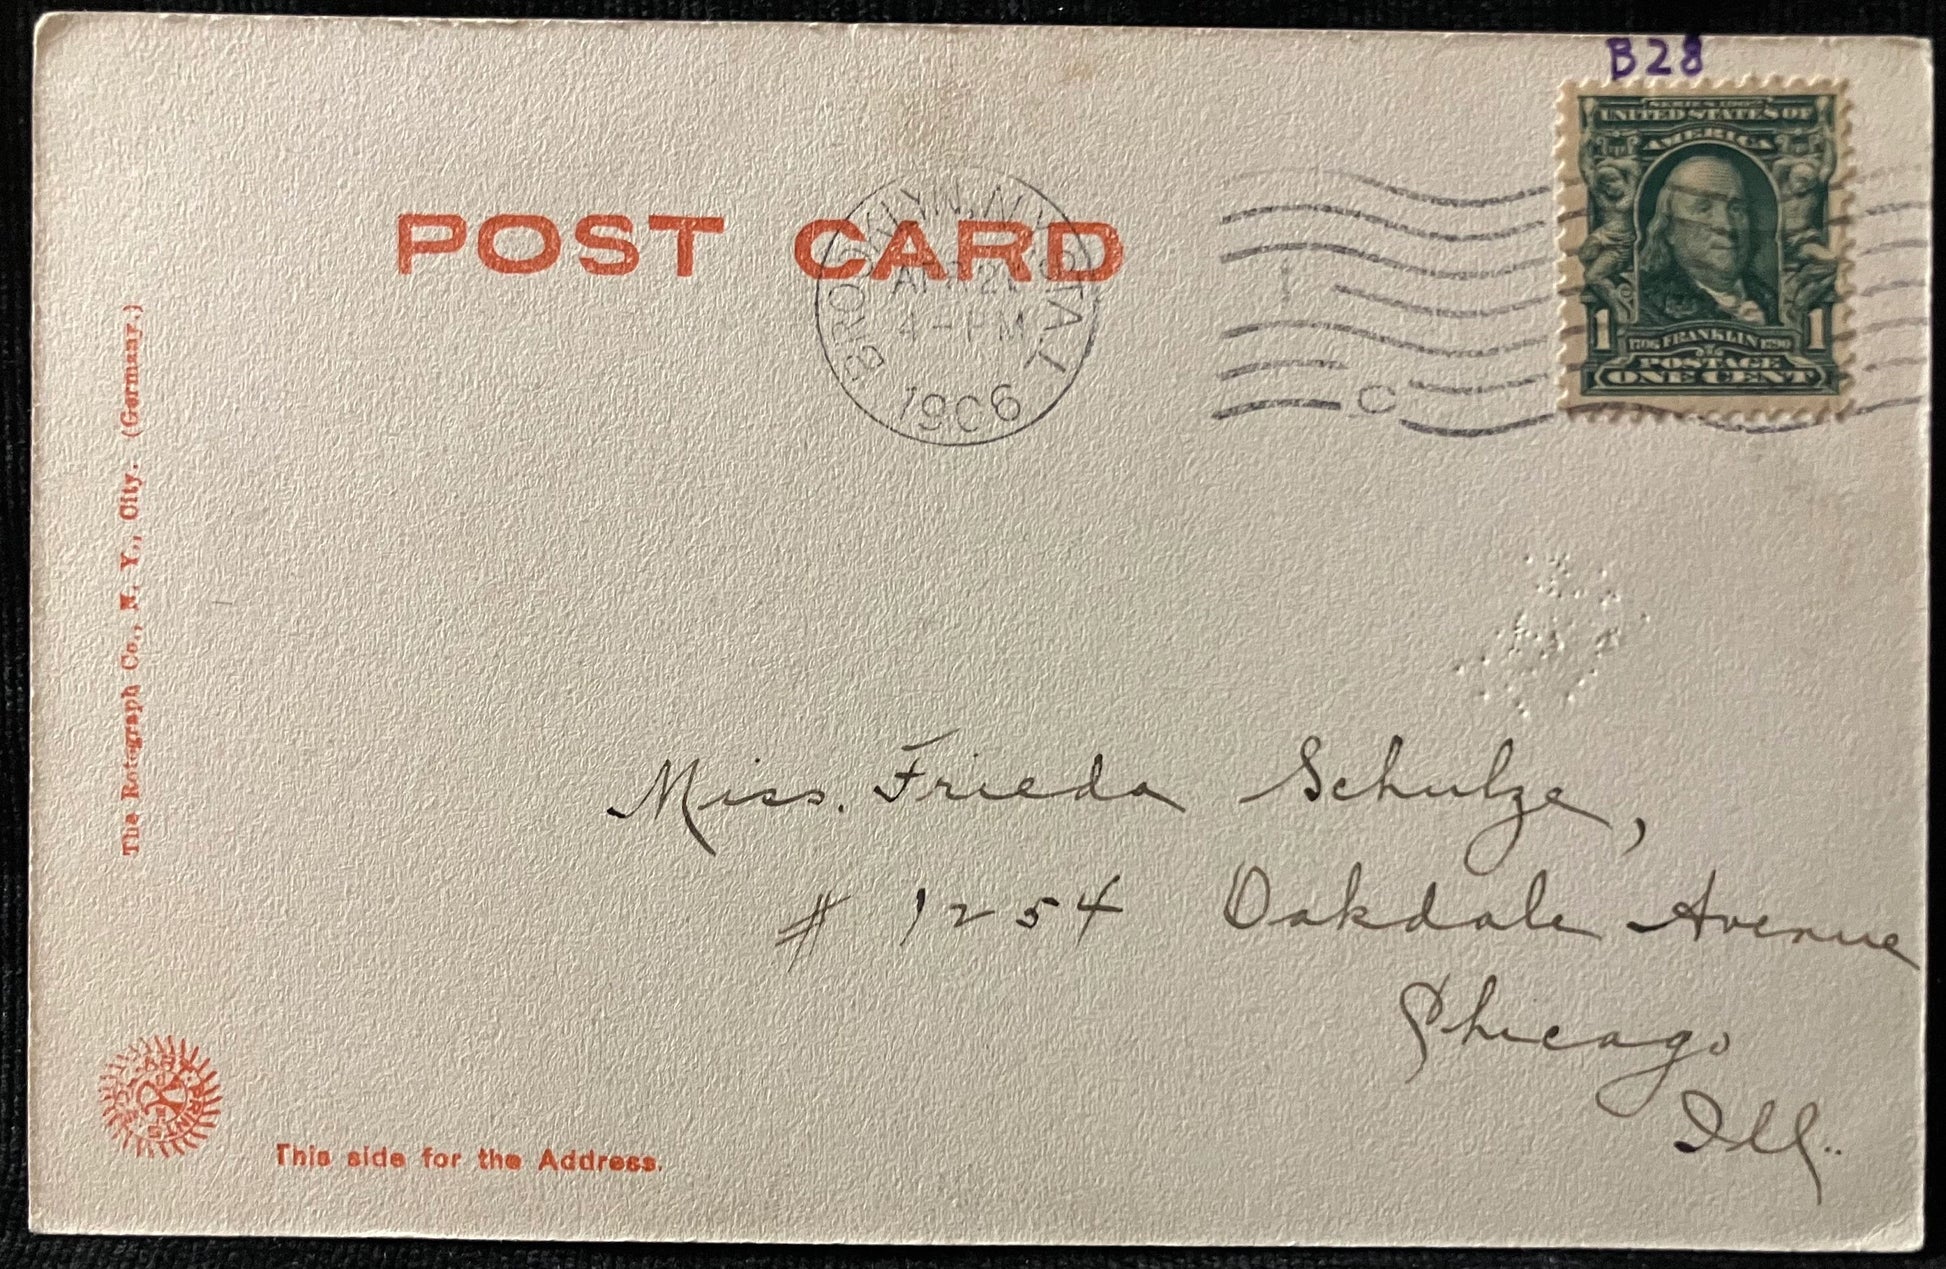 B28
SERIES 1902
UNITED STATES OF
AMERICA
1 1706 FRANKLIN 1790 1
POSTAGE
ONE CENT
POST CARD
BROOKLYN, N.Y. STA. L
4-PM
1906
C
The Rotograph Co., N. Y., City. (Germany.)
Miss. Frieda Schulze,
# 1254 Oakdale Avenue
Chicago
Ill..
This side for the Address.